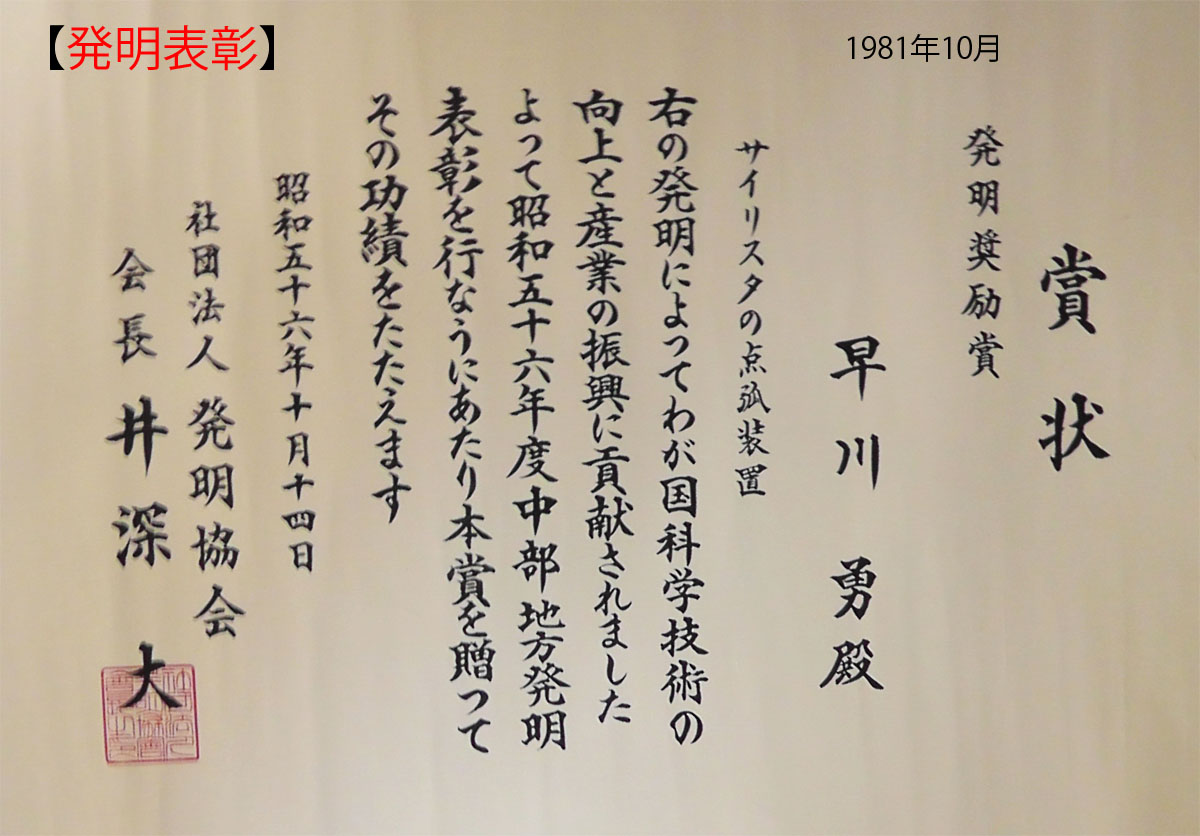 【発明表彰】
1981年10月
賞状
発明奨励賞
早川 勇殿
サイリスタの点弧装置
右の発明によってわが国科学技術の
向上と産業の振興に貢献されました
よって昭和五十六年度中部地方発明
表彰を行なうにあたり本賞を贈つて
その功績をたたえます
昭和五十六年十月十四日
社団法人 発明協会
会長 井深 大